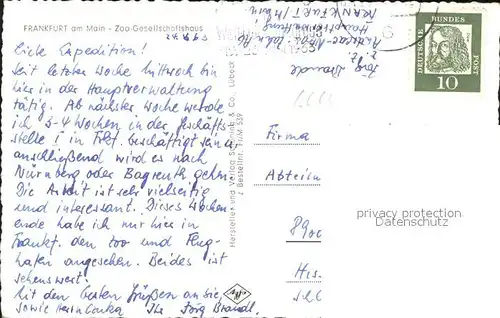 FRANKFURT am Main - Zoo-Gesellschaftshaus
Liebe Expedition!
Seit letzter Woche Mittwoch bin
ich hier in der Hauptverwaltung
tätig. Ab nächster Woche werde
ich 3-4 Wochen in der Geschäfts-
stelle I in Fft. beschäftigt sein u.
anschließend wird es nach
Nürnberg oder Bayreuth gehn.
Die Arbeit ist sehr vielseitig
und interessant. Dieses Wochen
ende habe ich mir hier in
Frankf. den Zoo und Flug-
hafen angesehen. Beides ist
sehenswert.
Mit den besten Grüßen an sie,
sowie Herrn Ihr Jörg Brandl.
Hersteller und Verlag Schöning & Co., Lübeck
Bestellnr. Fr/M 559
Jörg Brandl
FRANKFURT/Main
Hauptverwaltung
DEUTSCHE BUNDESPOST
10
Firma
Abtein
privacy protection
Watermark